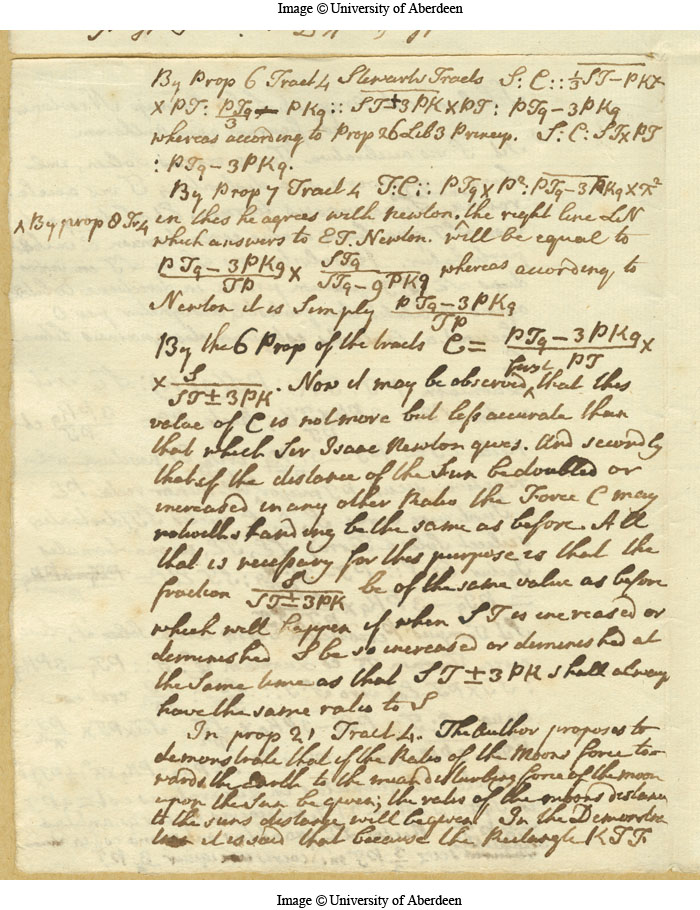 Image © University of Aberdeen
By Prop 6 Tract 4 Stewarts Tracts S: C :: ⅓ST-PK×
× PT: PTq/3 - PKq :: ST±3PK×PT : PTq-3PKq
whereas according to Prop 26 Lib 3 Princip. S: C: ST×PT
: PTq-3PKq.
By Prop 7 Tract 4 T:C:: PTq×P²: PTq-3PKq×π²
^ By prop 8 Tr 4
in this he agrees with Newton. ^ the right line LN
which answers to ET. Newton. will be equal to
PTq-3PKq/TP × STq/STq-9PKq whereas according to
Newton it is simply PTq-3PKq/TP
By the 6 Prop of the tracts C = PTq-3PKq/PT ×
× S/ST±3PK. Now it may be observed ^ first that this
value of C is not more but less accurate than
that which Sir Isaac Newton gives. And secondly
that if the distance of the Sun be doubled or
increased in any other Ratio the Force C may
notwithstanding be the same as before. All
that is necessary for this purpose is that the
fraction S/ST±3PK be of the same value as before
which will happen if when ST is increased or
diminished S be so increased or diminished at
the same time as that ST±3PK shall always
have the same ratio to S
In prop 21 Tract 4. The Author proposes to
demonstrate that if the Ratio of the Moons force to-
wards the Earth to the mean disturbing force of the moon
upon the Sun be given; the ratio of the moons distance
to the suns distance will be given In the Demonstra
tion it is said that because the Rectangle KTF
Image © University of Aberdeen